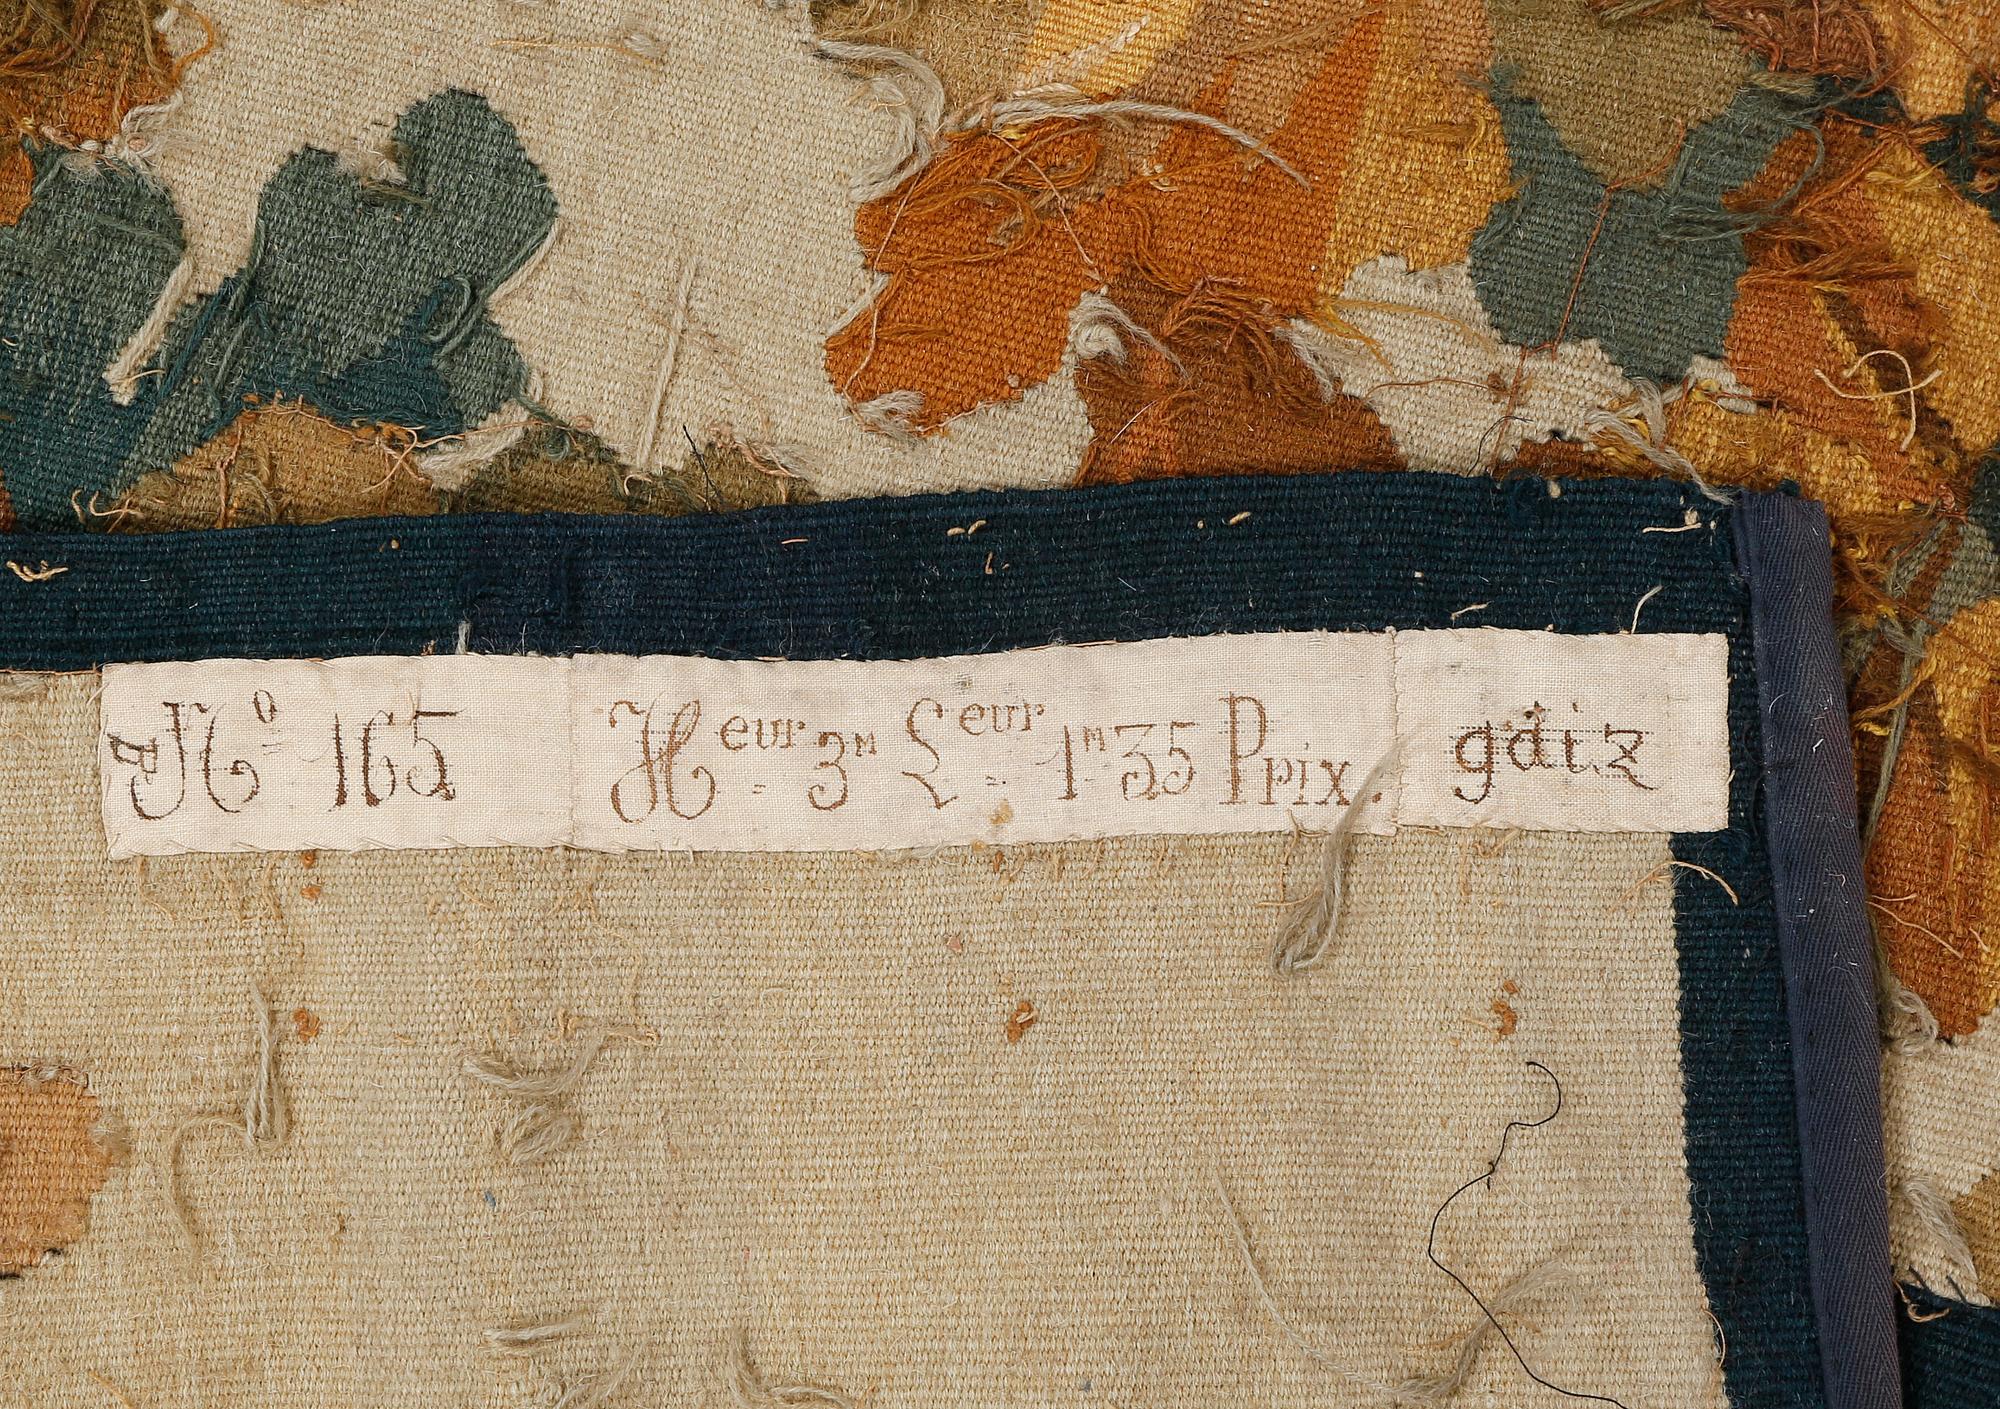 Nº 165 Heur = 3M Leur = 1M35 Prix. gdiz